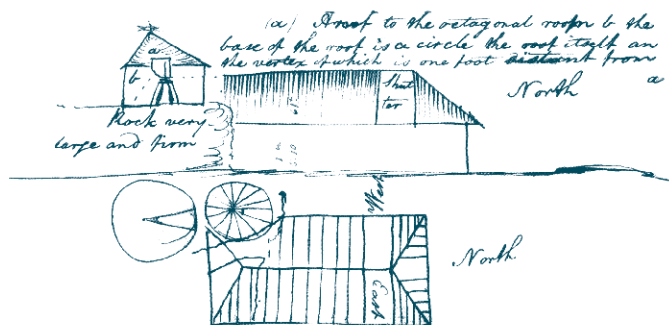 (a) A roof to the octagonal room b the
base of the roof is a circle the roof itself an
the vertex of which is one foot distant from
a
a
b
Shut
ter
North
Rock very
large and firm
West
North
East